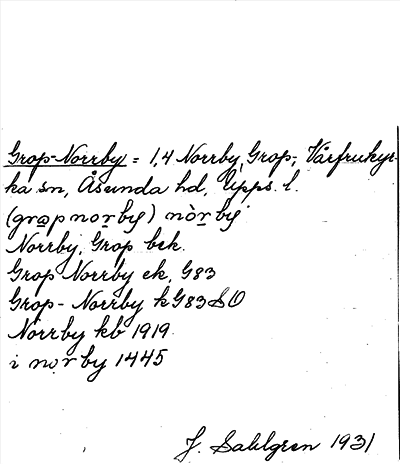 Grop-Norrby = 1,4 Norrby, Grop-, Vårfrukyr-
ka sn, Åsunda hd, Upps. l.
(grapnorby) nòrby
Norrby, Grop bek.
Grop Norrby ek, G83
Grop-Norrby k G83 SO
Norrby kb 1919
i norby 1445
J. Sahlgren 1931